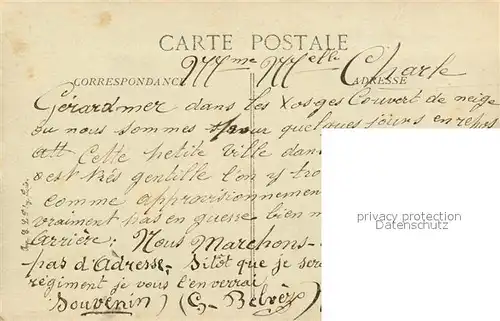 CARTE POSTALE
Mme Melle Charle
CORRESPONDANCE ADRESSE
Gérardmer dans les Vosges Couvert de neige
ou nous sommes pour quelques jours en repos
Cette petite Ville dans
est trés gentille l'on y
comme approvisionnemen
vraiment pas en guerre bien
Arrière: Nous Marchons-
pas d'Adresse. Sitôt que je
régiment je vous l'enverrai
Souvenir) (C-
privacy protection
Datenschutz